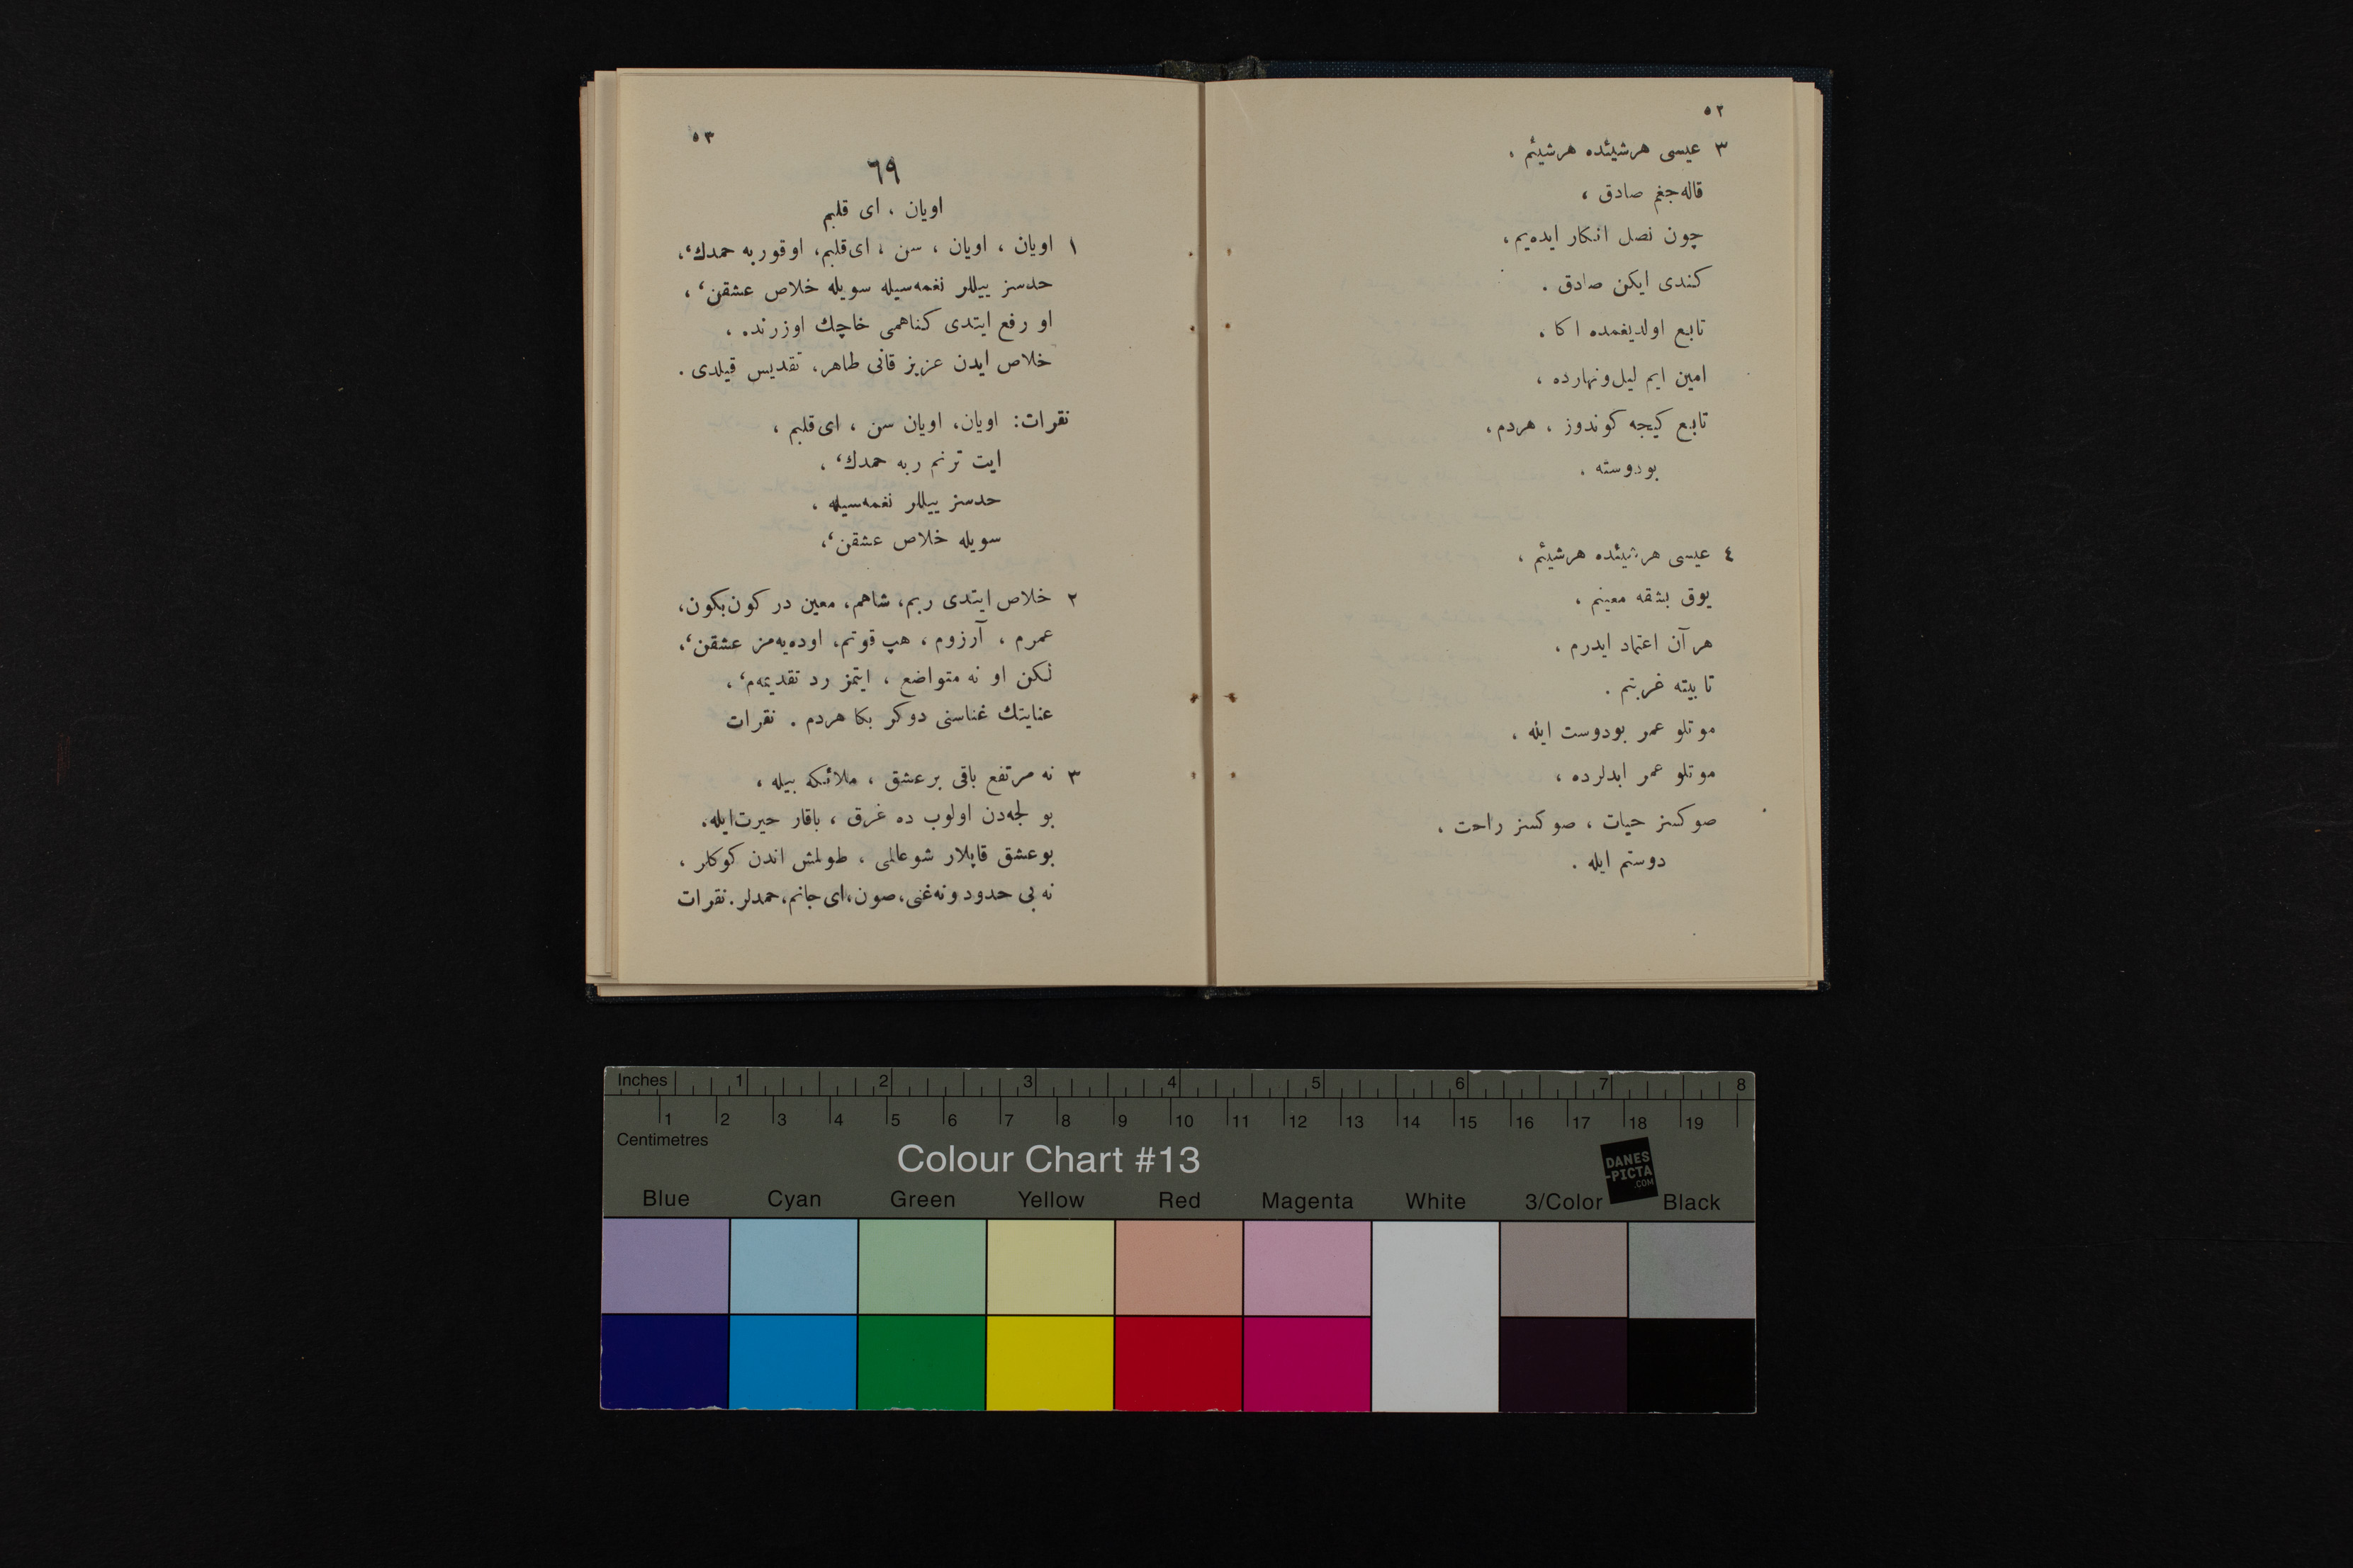 ٥٢
٣ عیسی هرشیئده هرشیئم ،
قاله‌جغم صادق ،
چون نصل انکار ایده‌یم ،
کندی ایکن صادق .
تابع اولدیغمده اکا ،
امین ایم لیل‌ونهارده ،
تابع کیجه کوندوز ، هردم ،
بودوسته .
٤ عیسی هرشیئده هرشیئم ،
یوق بشقه معینم ،
هرآن اعتماد ایدرم ،
تا بیته غربتم .
موتلو عمر بودوست ایله ،
موتلو عمر ابدلرده ،
صوکسز حیات ، صوکسز راحت ،
دوستم ایله .
٥٣
٦٩
اویان ، ای قلبم
١ اویان ، اویان ، سن ، ای‌قلبم، اوقوربه حمدك‘،
حدسز ییللر نغمه‌سیله سویله خلاص عشقن‘ ،
او رفع ایتدی کناهمی خاچك اوزرنده ،
خلاص ایدن عزیز قانی طاهر، تقدیس قیلدی .
نقرات: اویان، اویان سن ، ای‌قلبم ،
ایت ترنم ربه حمدك‘ ،
حدسز ییللر نغمه‌سیله ،
سویله خلاص عشقن‘،
٢ خلاص ایتدی ربم، شاهم، معین در کون‌بکون،
عمرم ، آرزوم ، هپ قوتم، اوده‌یه‌مز عشقن‘،
لکن او نه متواضع ، ایتمز رد تقدیمه‌م‘ ،
عنایتك غناسنی دوکر بکا هردم . نقرات
٣ نه مرتفع باقی برعشق ، ملائکه بیله ،
بو لجه‌دن اولوب ده غرق ، باقار حیرت‌ایله،
بوعشق قاپلار شوعالمی ، طولمش اندن کوکلر ،
نه بی حدود ونه‌غنی،صون،ای‌جانم،حمدلر.نقرات
Inches 1 2 3 4 5 6 7 8
1 2 3 4 5 6 7 8 9 10 11 12 13 14 15 16 17 18 19
Centimetres
Colour Chart #13
DANES
-PICTA
.COM
Blue Cyan Green Yellow Red Magenta White 3/Color Black